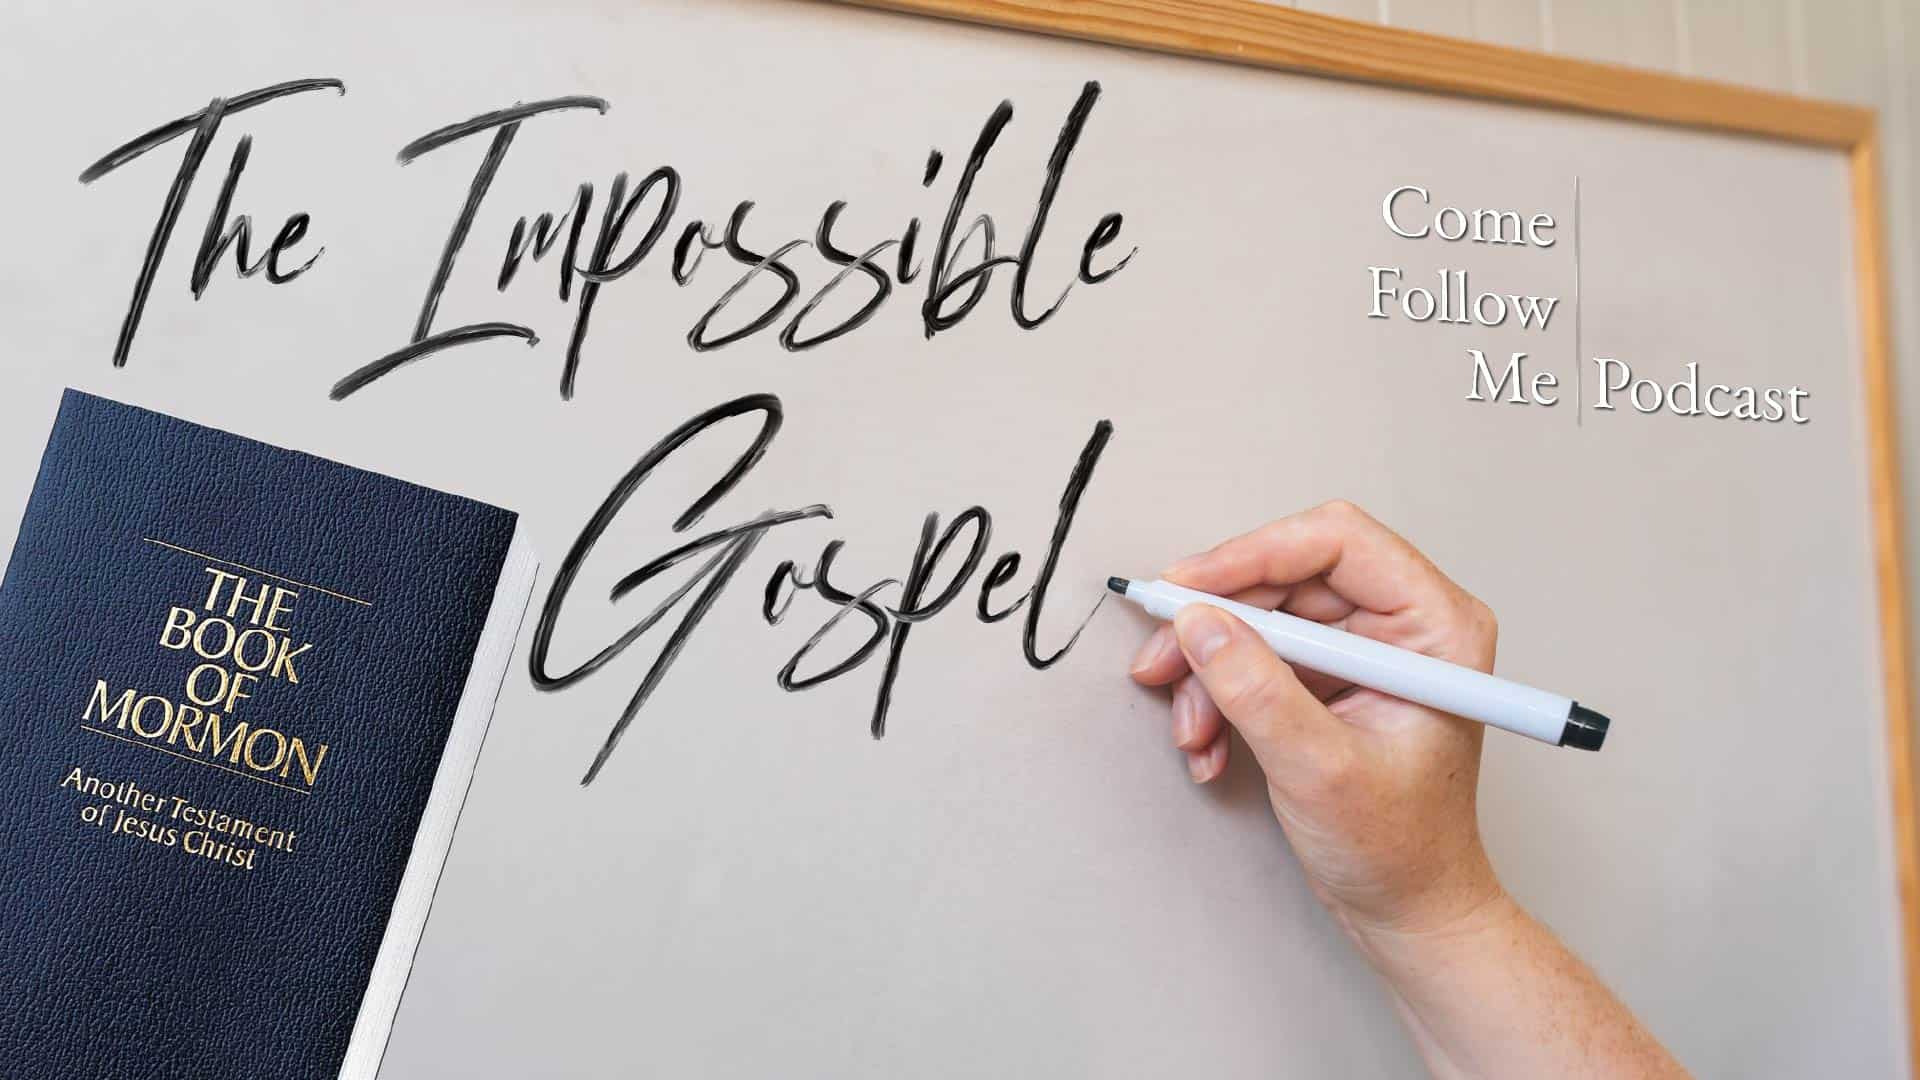 The Impossible
Gospel
Come
Follow
Me Podcast
THE
BOOK
OF
MORMON
Another Testament
of Jesus Christ